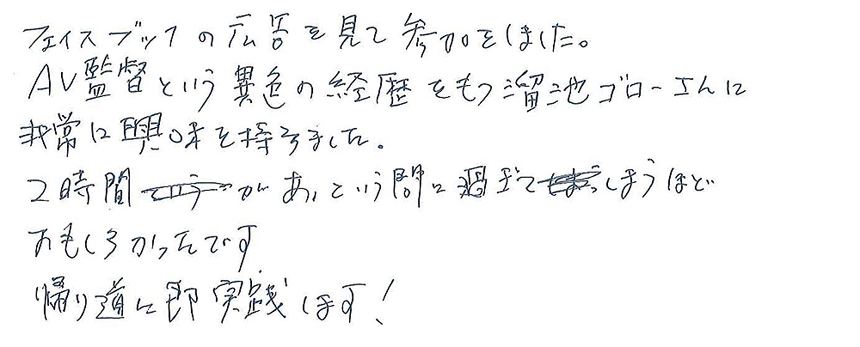 フェイスブックの広告を見て参加をしました。
AV監督という異色の経歴をもつ溜池ゴローさんに
非常に興味を持ちました。
2時間があっという間に過ぎてしまうほど
おもしろかったです
帰り道に即実践します!